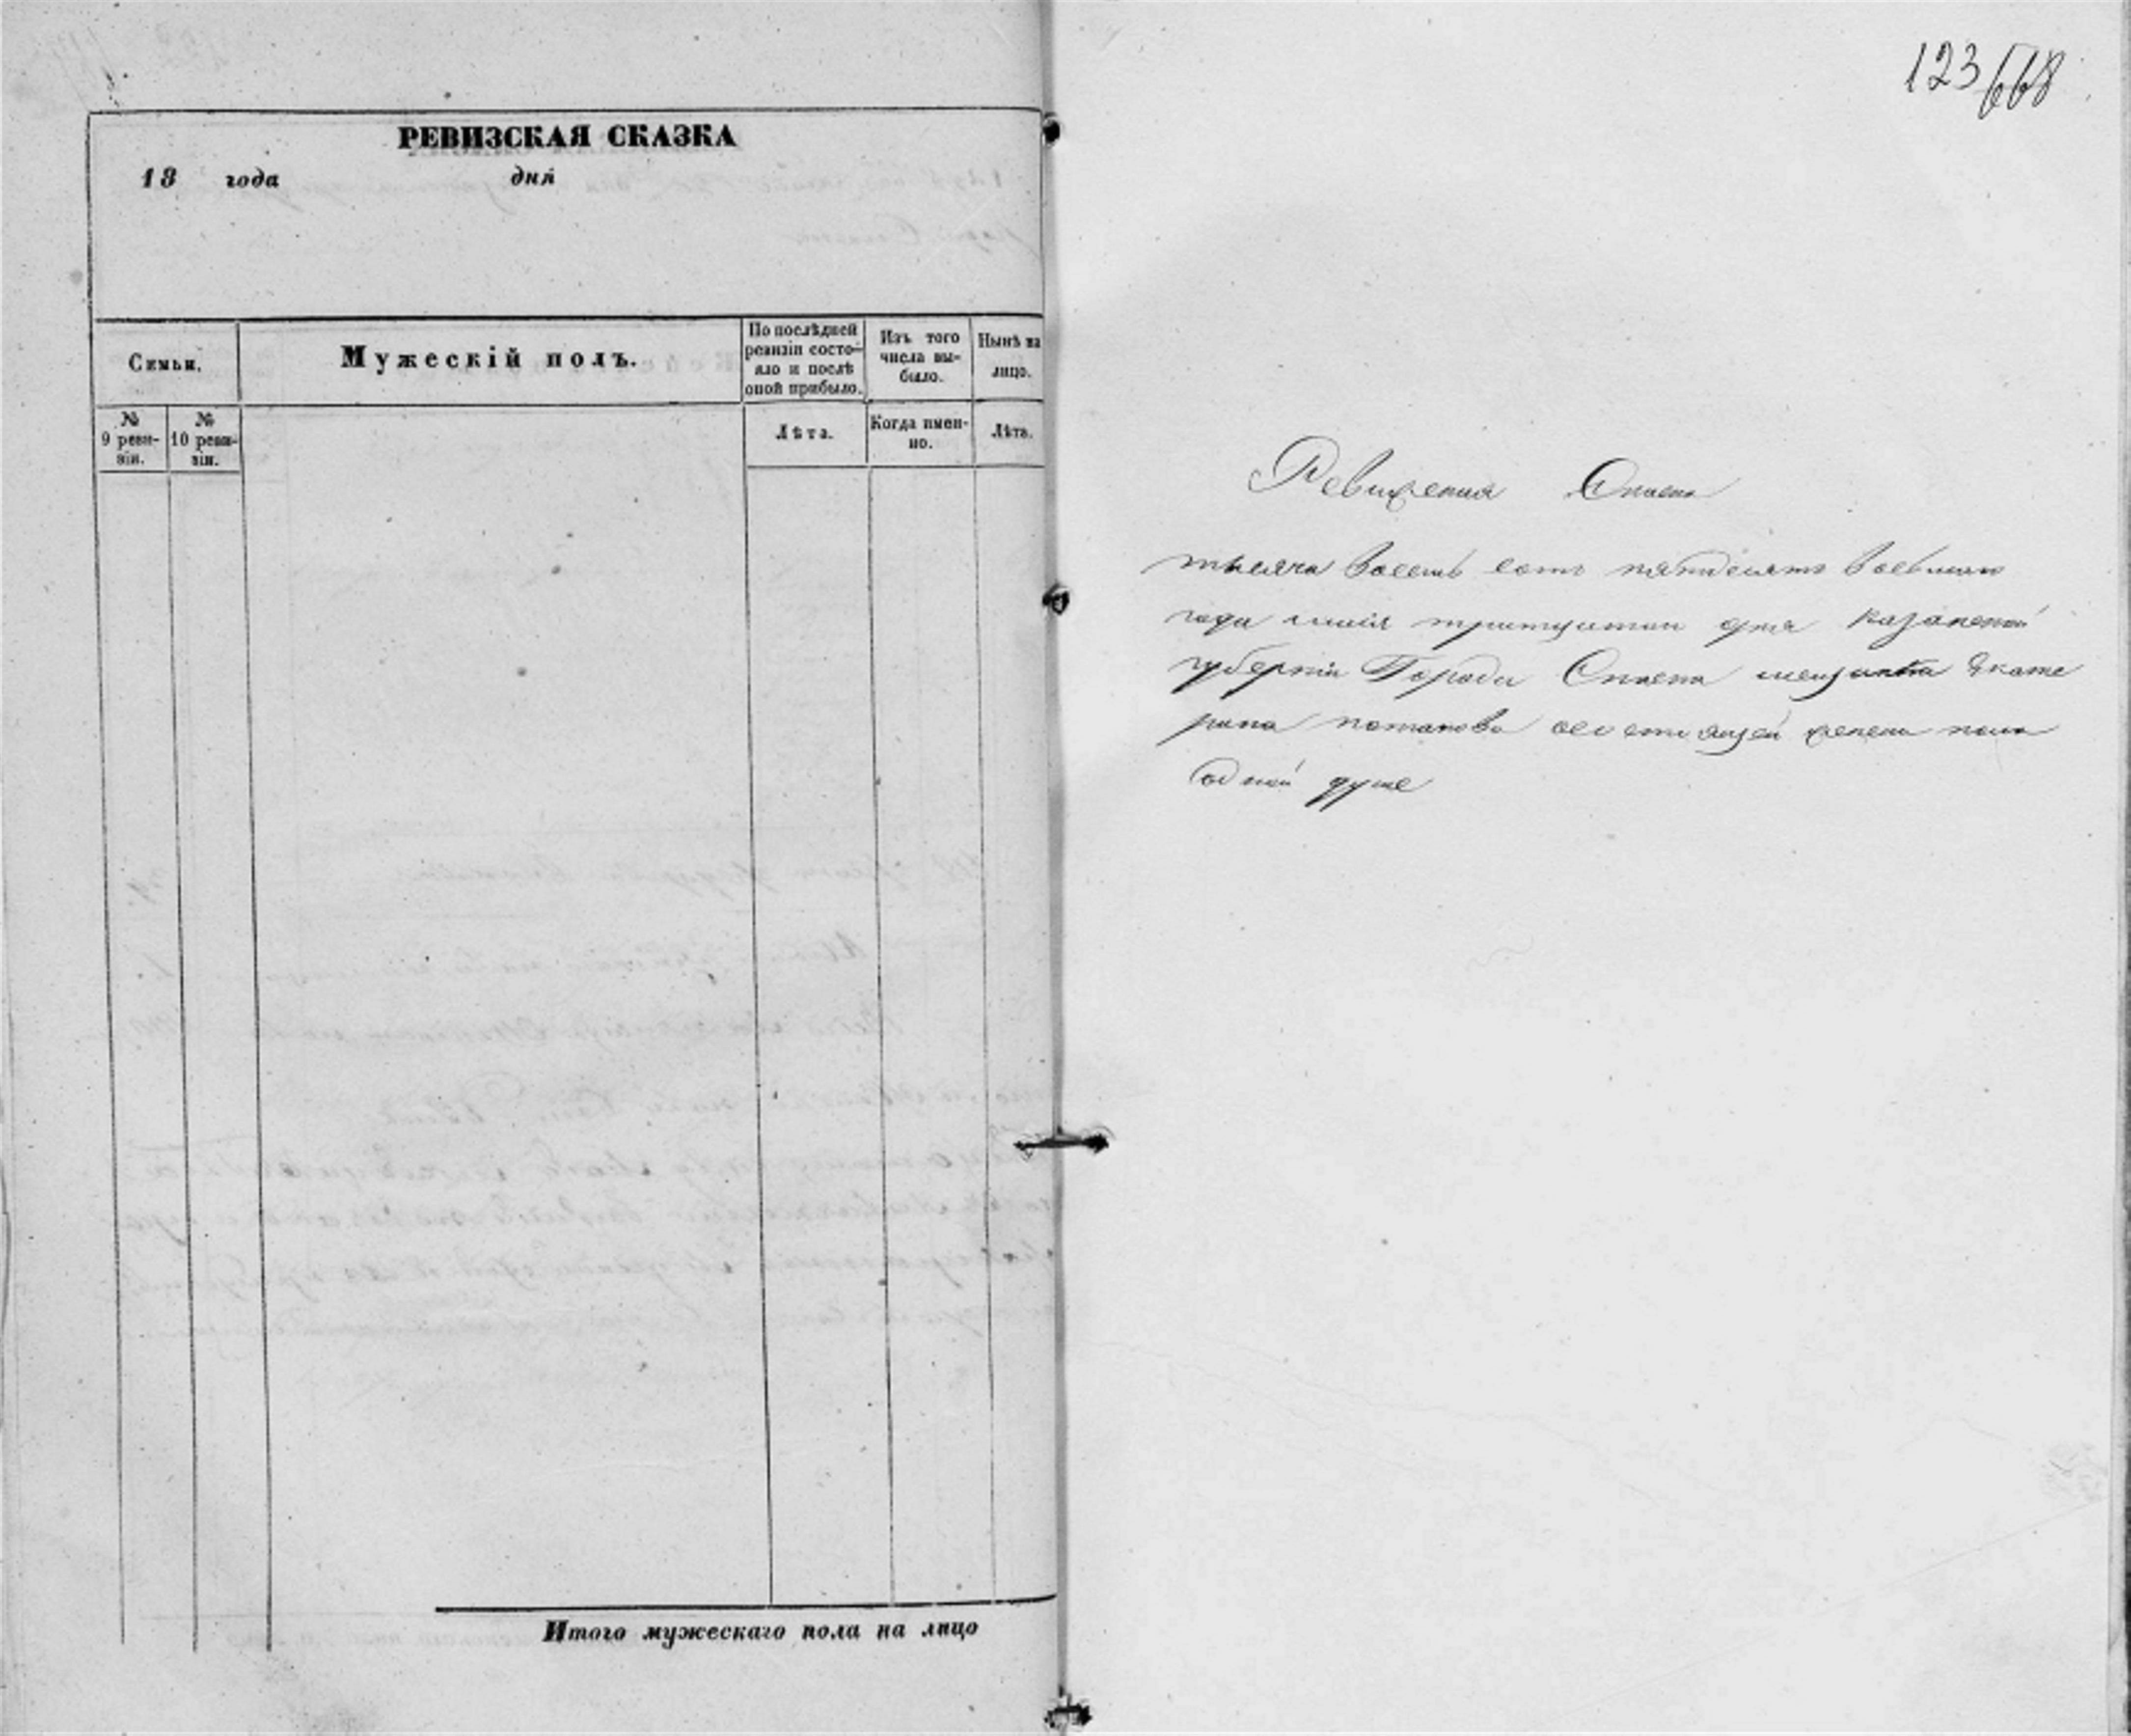 РЕВИЗСКАЯ СКАЗКА
18 года дня
Семьи.
Мужескій полъ.
По послѣдней ревизіи состо-
яло и послѣ
оной прибыло.
Изъ того
числа вы-
было.
Нынѣ на
лицо.
№
9 реви-
зіи.
№
10 реви-
зіи.
Лѣта.
Когда имен-
но.
Лѣта.
Итого мужескаго пола на лицо
123 668
Ревизская
тысяча восемь сотъ пятдесятъ восьмаго
года маія тритцатаго дня казанской
губерніи Города Спаска мещанка Екате
рина потапова женска пола
одной душе